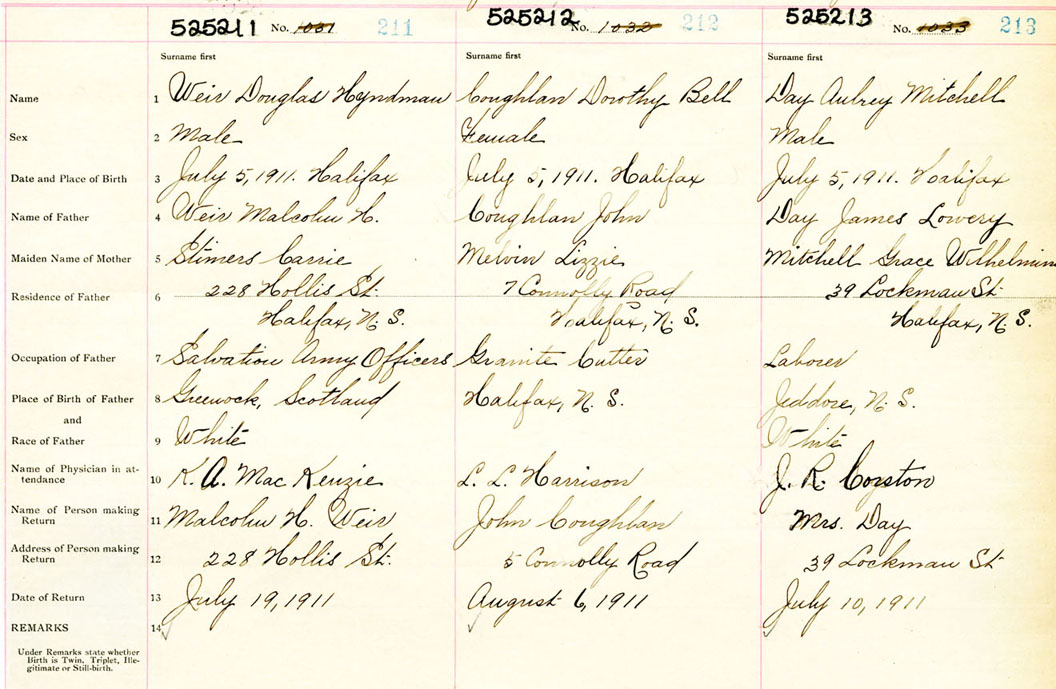 525211 No. 1031 211 525212 No. 1032 212 525213 No. 1033 213
Surname first Surname first Surname first
Name 1 Weir Douglas Hyndman Coughlan Dorothy Bell Day Aubrey Mitchell
Sex 2 Male Female Male
Date and Place of Birth 3 July 5, 1911. Halifax July 5, 1911. Halifax July 5, 1911. Halifax
Name of Father 4 Weir Malcolm H. Coughlan John Day James Lowery
Maiden Name of Mother 5 Stimers Carrie Melvin Lizzie Mitchell Grace Wilhelmin
Residence of Father 6 228 Hollis St. 7 Connolly Road 39 Lockman St
Halifax, N. S. Halifax, N. S. Halifax, N. S.
Occupation of Father 7 Salvation Army Officers Granite Cutter Laborer
Place of Birth of Father 8 Greenock, Scotland Halifax, N. S. Jeddore, N. S.
and
Race of Father 9 White White
Name of Physician in at-
tendance 10 K. A. Mac Kenzie L. L. Harrison J. R. Corston
Name of Person making
Return 11 Malcolm H. Weir John Coughlan Mrs. Day
Address of Person making
Return 12 228 Hollis St. 5 Connolly Road 39 Lockman St
Date of Return 13 July 19, 1911 August 6, 1911 July 10, 1911
REMARKS 14
Under Remarks state whether
Birth is Twin, Triplet, Ille-
gitimate or Still-birth.